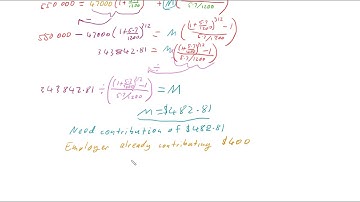 550000 = 47000 (1+5.7/1200)^312 + M ((1+5.7/1200)^312 - 1 / 5.7/1200)
550000 - 47000 (1+5.7/1200)^312 = M ((1+5.7/1200)^312 - 1 / 5.7/1200)
343842.81 = M ((1+5.7/1200)^312 - 1 / 5.7/1200)
343842.81 ÷ ((1+5.7/1200)^312 - 1 / 5.7/1200) = M
M = $482.81
Need contribution of $482.81
Employer already contributing $400